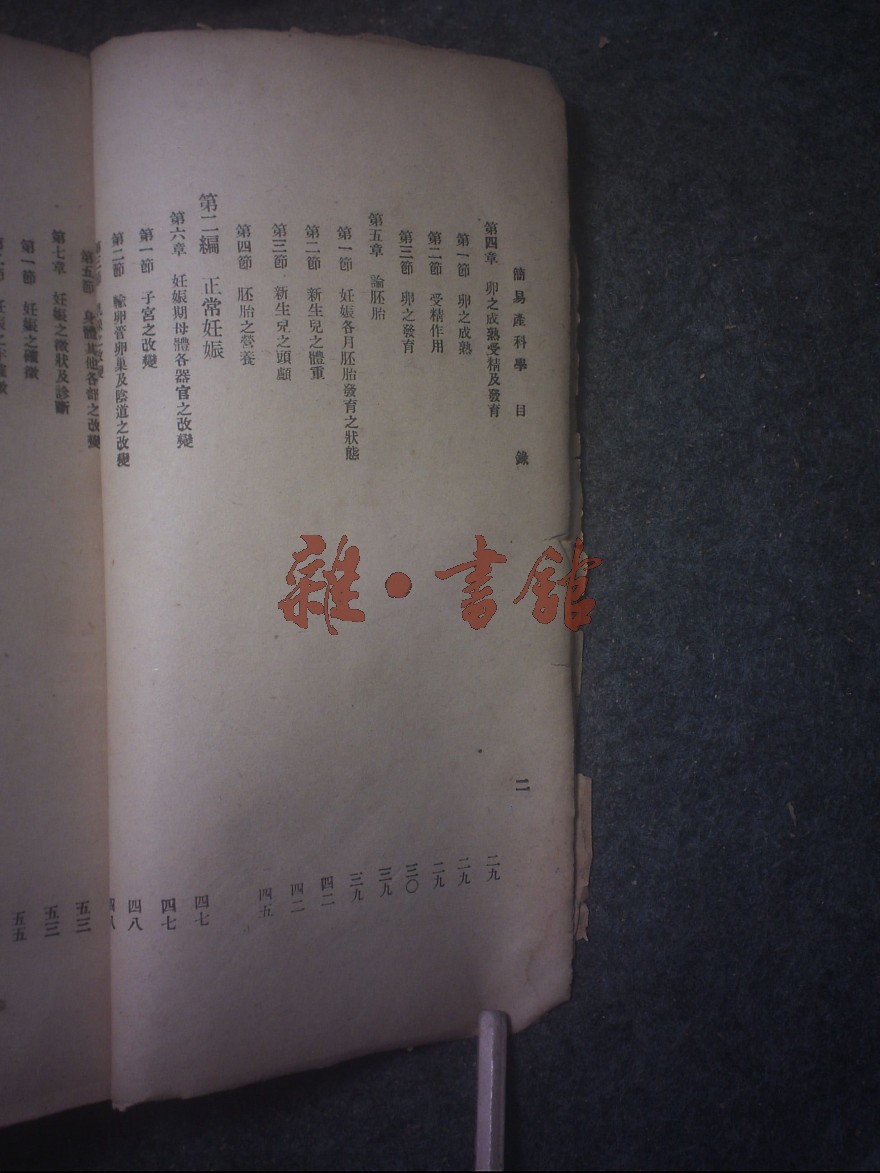 簡易產科學 目錄 二
第四章 卵之成熟受精及發育 二九
第一節 卵之成熟 二九
第二節 受精作用 二九
第三節 卵之發育 三〇
第五章 論胚胎 三九
第一節 妊娠各月胚胎發育之狀態 三九
第二節 新生兒之體重 四二
第三節 新生兒之頭顱 四二
第四節 胚胎之營養 四五
第二編 正常妊娠 四七
第六章 妊娠期母體各器官之改變 四七
第一節 子宮之改變 四八
第二節 輸卵管卵巢及陰道之改變 四八
第五節 身體其他各部之改變 五三
第七章 妊娠之徵狀及診斷 五三
第一節 妊娠之確徵 五五
雜·書館